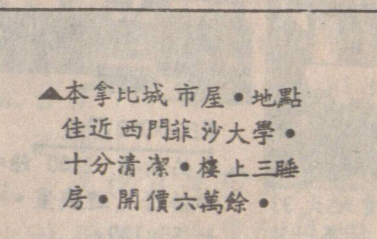 ▲本拿比城市屋•地點
佳近西門菲沙大學•
十分清潔•樓上三睡
房•開價六萬餘•